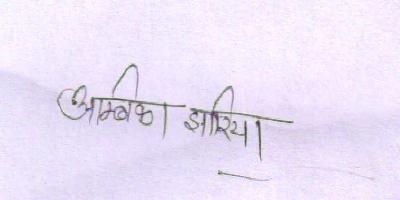 अम्बिका झारिया